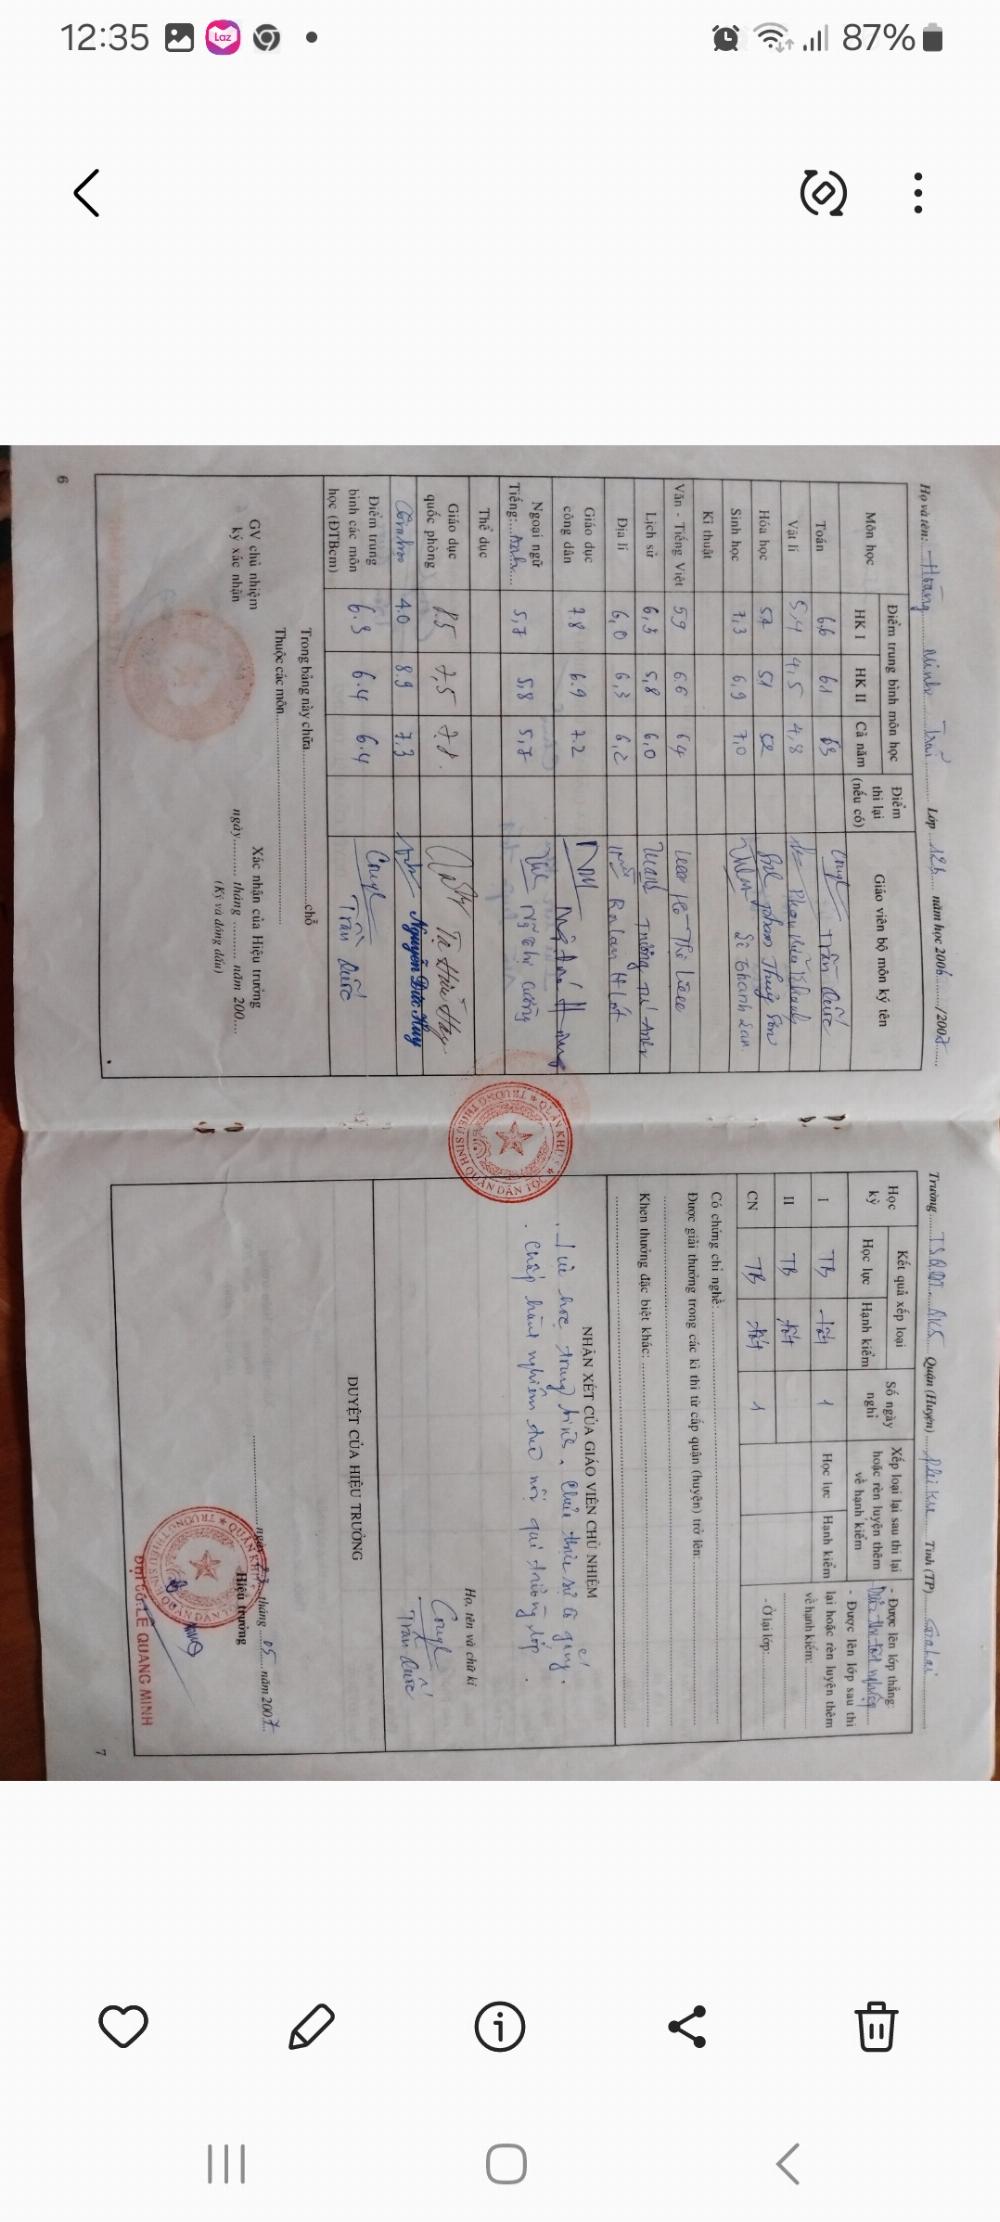 12:35
Laz
87%
Họ và tên: Hoàng Minh Lớp 12b năm học 2006/2007
Môn học
Điểm trung bình môn học
HK I
HK II
Cả năm
Điểm thi lại (nếu có)
Giáo viên bộ môn ký tên
Toán 6.6 6.1 6.3 Trần Đức
Vật lí 5,4 4,5 4,8
Hóa học 5.2
Sinh học 7,3 6,9 7,0
Kĩ thuật
Văn - Tiếng Việt 5.9 6.6 6.4
Lịch sử 6,3 5,8 6,0
Địa lí 6,0 6,3 6,2
Giáo dục công dân 7.8 6.9 7.2
Ngoại ngữ
Tiếng: Anh 5,7 5,8 5,7
Thể dục
Giáo dục quốc phòng 7,5
4.0 8.9 7.3 Nguyễn Đức Huy
Điểm trung bình các môn học (ĐTBcm) 6.3 6.4 6.4 Trần Đức
Trong bảng này chữa chỗ
Thuộc các môn
GV chủ nhiệm
ký xác nhận
Xác nhận của Hiệu trưởng
(Ký và đóng dấu)
ngày tháng năm 200
6
TRƯỜNG THIẾU SINH QUÂN DÂN TỘC
Trường T.S.Q Quận (Huyện) Pleiku Tỉnh (TP) Gia Lai
Học kỳ
Kết quả xếp loại
Học lực
Hạnh kiểm
Số ngày nghỉ
Xếp loại lại sau thi lại hoặc rèn luyện thêm về hạnh kiểm
Học lực
Hạnh kiểm
- Được lên lớp thẳng:
- Được lên lớp sau thi lại hoặc rèn luyện thêm về hạnh kiểm:
- Ở lại lớp:
I TB tốt 1
II TB tốt
CN TB tốt 1
Có chứng chỉ nghề:
Được giải thưởng trong các kì thi từ cấp quận (huyện) trở lên:
Khen thưởng đặc biệt khác:
NHẬN XÉT CỦA GIÁO VIÊN CHỦ NHIỆM
học trung bình, chưa thực sự cố gắng.
Chấp hành nghiêm túc nội qui trường lớp.
Họ, tên và chữ kí
Trần Đức
DUYỆT CỦA HIỆU TRƯỞNG
ngày tháng 05 năm 2007
Hiệu trưởng
LE QUANG MINH
7